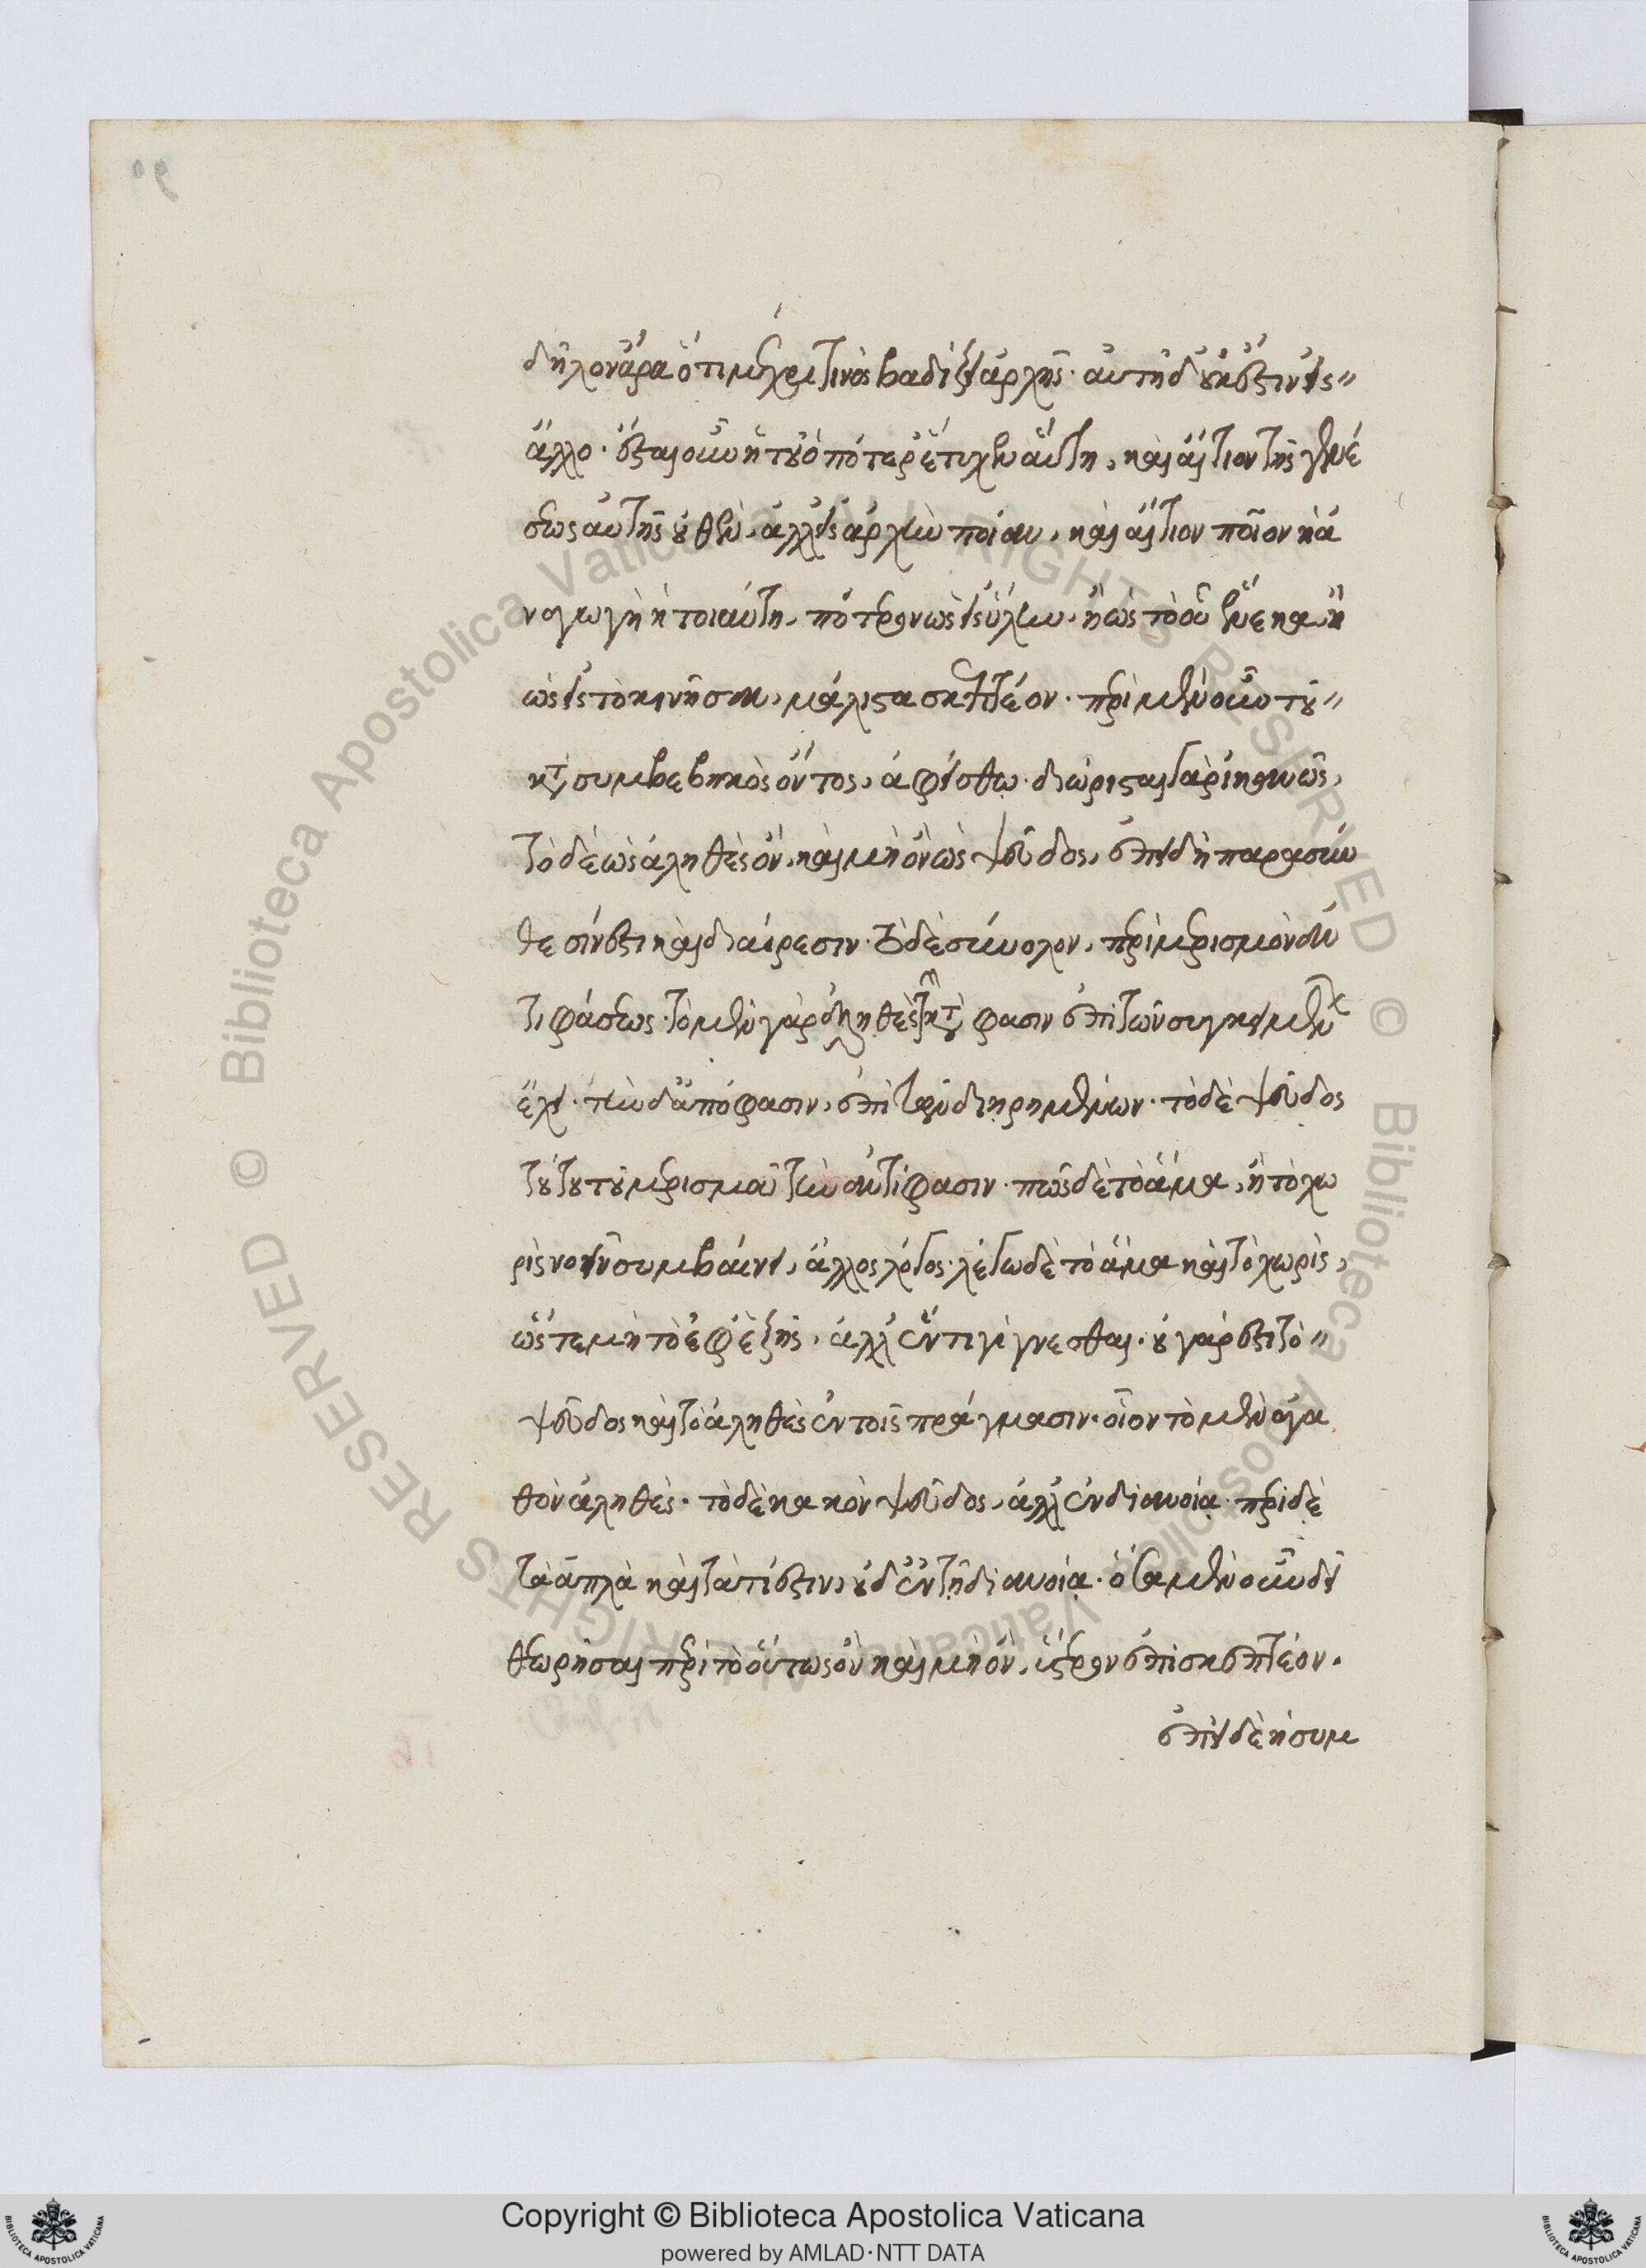 δῆλον ἄρα ὅτι μέχρι τινὸς βαδίζει ἀρχῆς· αὐτὴ δ' οὐκ ἔστιν εἰς
ἄλλο· ἔσται οὖν ἡ τοῦ ὁπότερ' ἔτυχεν αὕτη, καὶ αἴτιον τῆς γενέ
σεως αὐτῆς οὐθέν, ἀλλ' εἰς ἀρχὴν ποίαν, καὶ αἴτιον ποῖον ἡ ἀ
ναγωγὴ ἡ τοιαύτη, πότερον ὡς εἰς ὕλην, ἢ ὡς τὸ οὗ ἕνεκα, ἢ
ὡς εἰς τὸ κινῆσαν, μάλιστα σκεπτέον· περὶ μὲν οὖν τοῦ
κατὰ συμβεβηκὸς ὄντος, ἀφείσθω· διώρισται γὰρ ἱκανῶς,
τὸ δὲ ὡς ἀληθὲς ὄν, καὶ μὴ ὂν ὡς ψεῦδος, ἐπειδὴ παρὰ σύν
θεσίν ἐστι καὶ διαίρεσιν· τὸ δὲ σύνολον, περὶ μερισμὸν ἀν
τιφάσεως· τὸ μὲν γὰρ ἀληθὲς τὴν κατάφασιν ἐπὶ τῶν συγκειμένων
ἔχει· τὴν δ' ἀπόφασιν, ἐπὶ τῶν διῃρημένων· τὸ δὲ ψεῦδος
τούτου τοῦ μερισμοῦ τὴν ἀντίφασιν· πῶς δὲ τὸ ἅμα, ἢ τὸ χω
ρὶς νοεῖν συμβαίνει, ἄλλος λόγος· λέγω δὲ τὸ ἅμα καὶ τὸ χωρὶς,
ὥστε μὴ τὸ ἐφεξῆς, ἀλλ' ἕν τι γίγνεσθαι· οὐ γάρ ἐστι τὸ
ψεῦδος καὶ τὸ ἀληθὲς ἐν τοῖς πράγμασιν· οἷον τὸ μὲν ἀγα
θὸν ἀληθὲς· τὸ δὲ κακὸν ψεῦδος, ἀλλ' ἐν διανοίᾳ· περὶ δὲ
τὰ ἁπλᾶ καὶ τὰ τί ἐστιν, οὐδ' ἐν τῇ διανοίᾳ· ὅσα μὲν οὖν δεῖ
θεωρῆσαι περὶ τὸ οὕτως ὂν καὶ μὴ ὄν, ὕστερον ἐπισκεπτέον.
ἐπεὶ δὲ ἡ συμ
Copyright © Biblioteca Apostolica Vaticana
powered by AMLAD·NTT DATA